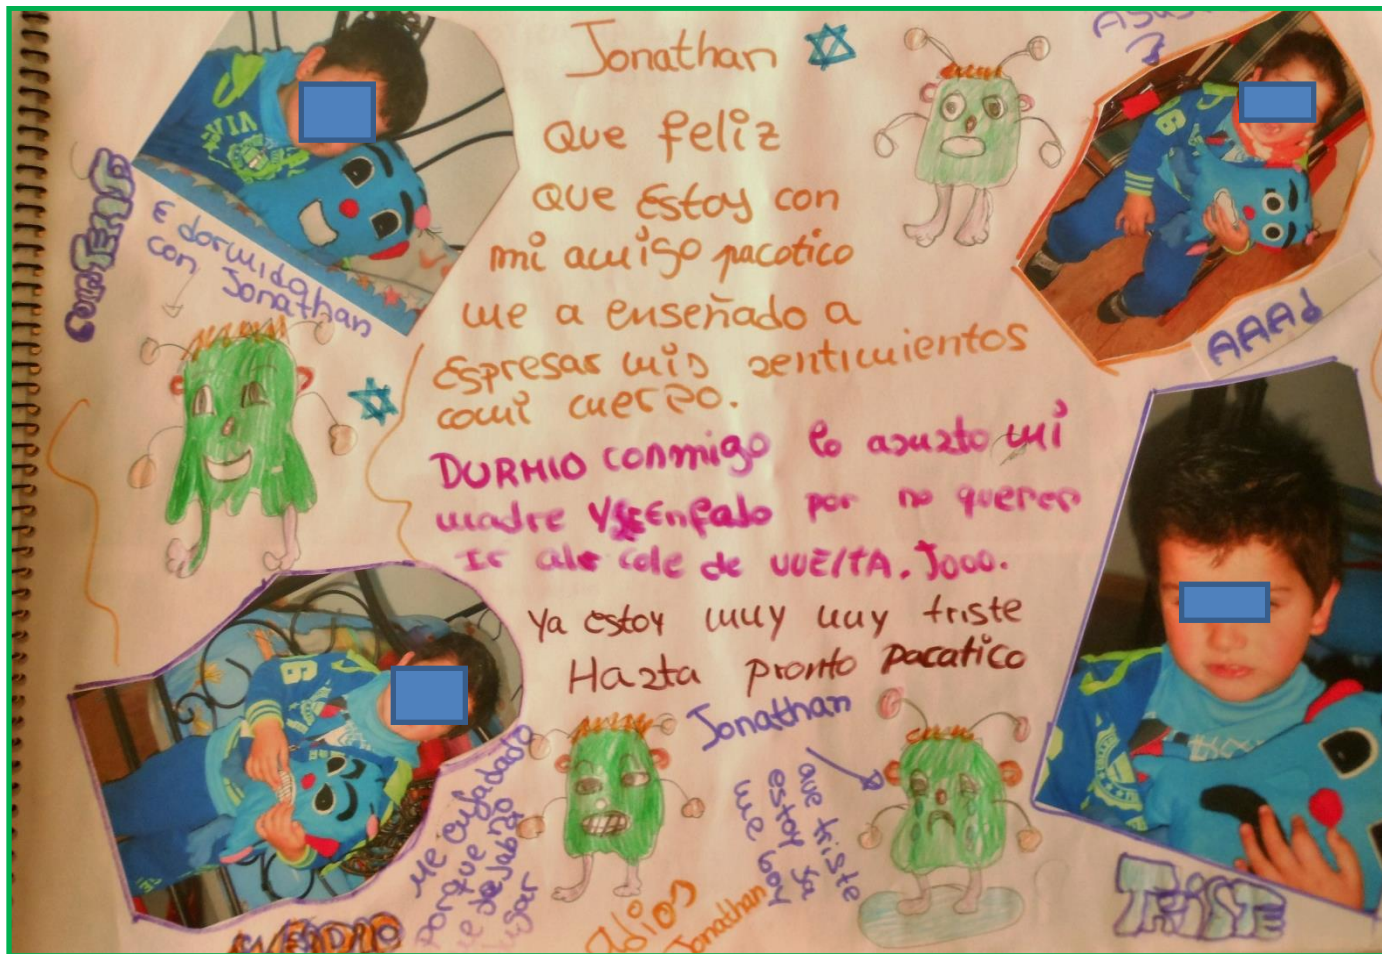 Jonathan
Que feliz
Que Estoy con
mi amigo pacotico
me a enseñado a
Espresar mis sentimientos
comi cuerpo.
DURMIO conmigo lo asuzto mi
madre Y SE Enfado por no querer
Ir ale cole de VUELTA. Jooo.
Ya estoy muy muy triste
Hazta pronto pacatico
Jonathan
CONTENTO
E dormido
con Jonathan
AAAd
TRISTE
Me enfadado
porque no
adios
Jonathan
que triste
estoy ya
me boy